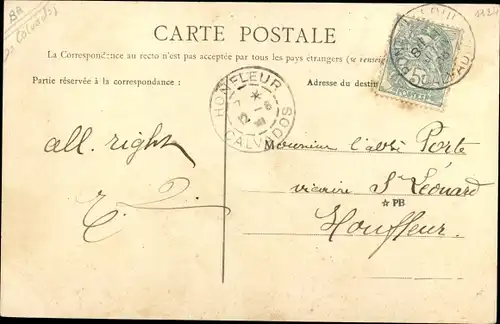 CARTE POSTALE
La Correspondance au recto n'est pas acceptée par tous les pays étrangers (se renseig
Partie réservée à la correspondance :
Adresse du destin
HONFLEUR
CALVADOS
all. right
Monsieur l'abbé Porte
vicaire St Léonard
☆ PB
Honfleur.